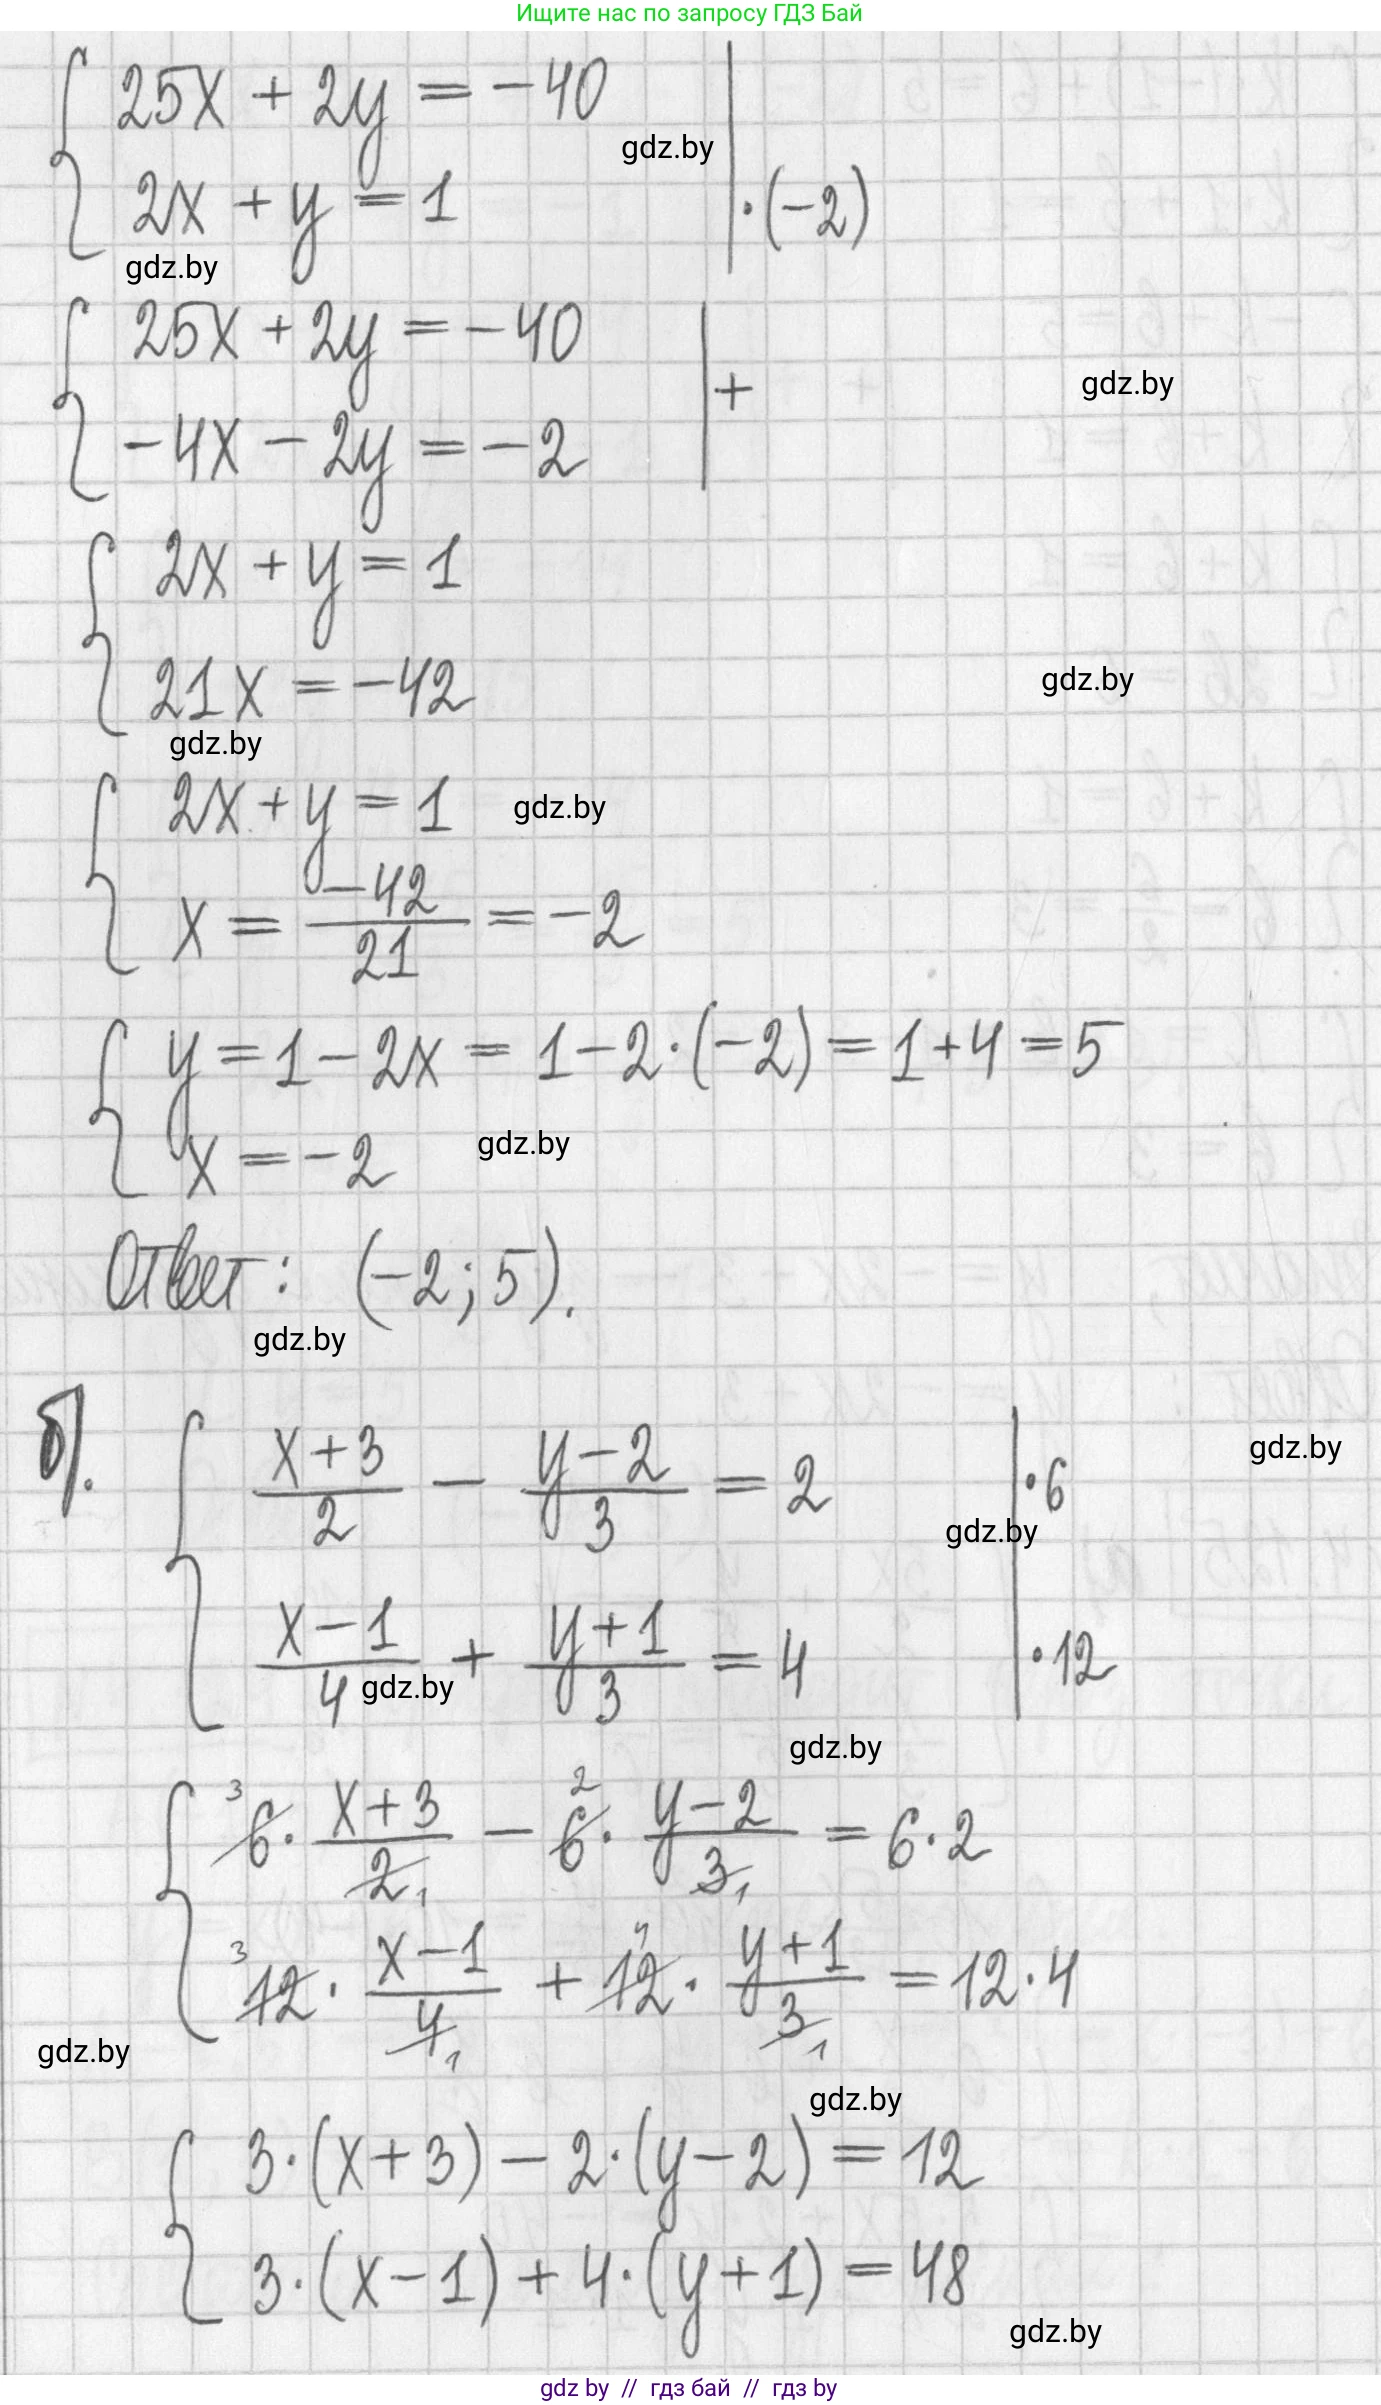 Ищите нас по запросу ГДЗ Бай
25x + 2y = -40
gdz.by
2x + y = 1 | ·(-2)
gdz.by
25x + 2y = -40
| +
gdz.by
-4x - 2y = -2
2x + y = 1
21x = -42
gdz.by
gdz.by
2x + y = 1
gdz.by
x = -42/21 = -2
y = 1 - 2x = 1 - 2·(-2) = 1 + 4 = 5
x = -2
gdz.by
Ответ: (-2; 5).
gdz.by
б). (x+3)/2 - (y-2)/3 = 2 | ·6
gdz.by
gdz.by
(x-1)/4 + (y+1)/3 = 4 | ·12
gdz.by
gdz.by
³6· (x+3)/2₁ - ²6· (y-2)/3₁ = 6·2
³12· (x-1)/4₁ + ⁴12· (y+1)/3₁ = 12·4
gdz.by
gdz.by
3·(x+3) - 2·(y-2) = 12
3·(x-1) + 4·(y+1) = 48
gdz.by
gdz by // гдз бай // гдз by